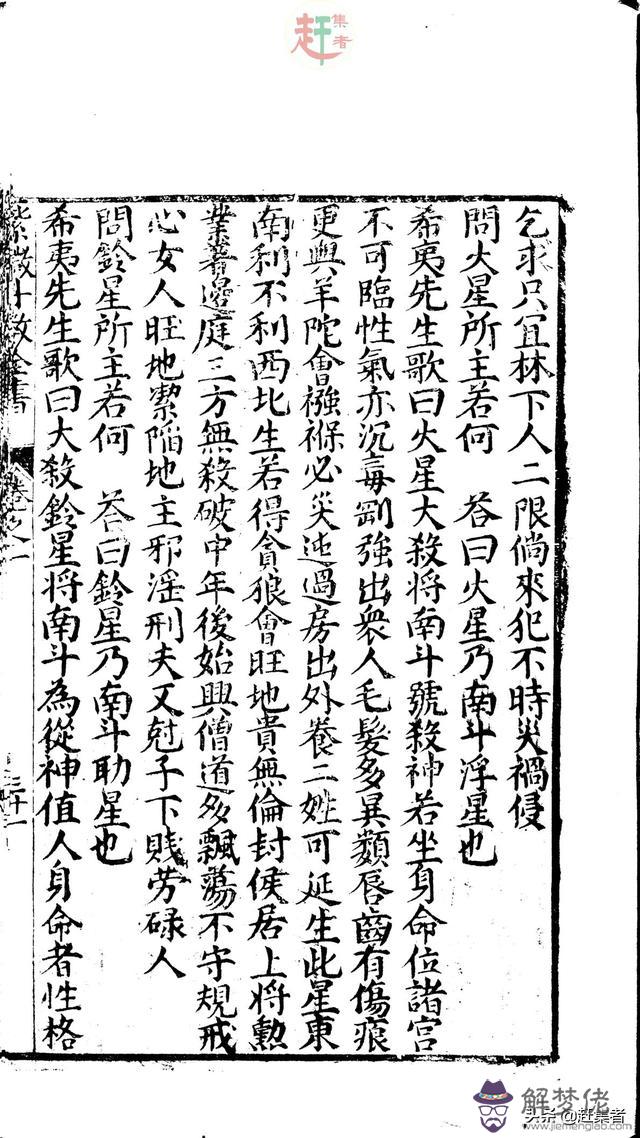 赶集者
乞求只宜林下人二限倘來犯不時災禍侵
問火星所主若何　答曰火星乃南斗浮星也
希夷先生歌曰火星大殺將南斗號殺神若坐身命位諸宮
不可臨性氣亦沉毒剛強出衆人毛髮多異類唇齒有傷痕
更與羊陀會襁褓必災迍過房出外養二姓可延生此星東
南利不利西北生若得貪狼會旺地貴無倫封侯居上將勲
業著邊庭三方無殺破中年後始興僧道多飄蕩不守規戒
心女人旺地潔陷地主邪淫刑夫又尅子下賤劳碌人
問鈴星所主若何　答曰鈴星乃南斗助星也
希夷先生歌曰大殺鈴星将南斗為從神值人身命者性格
紫微斗数全書　卷之一　三十一
解梦佬
www.jiemenglab.com
头条@赶集者